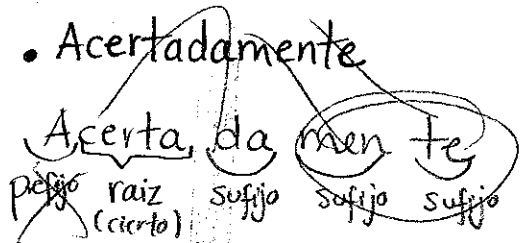 • Acertadamente
Acerta da men te
prefijo raiz sufijo sufijo sufijo
(cierto)